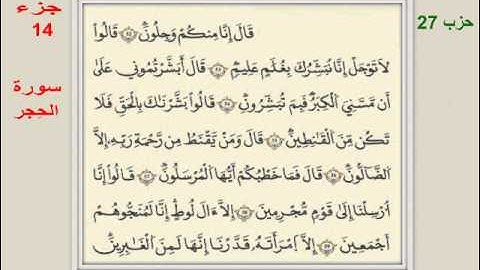 جزء
14
سورة
الحجر
حزب 27
قَالَ إِنَّا مِنكُمْ وَجِلُونَ قَالُواْ
لَا تَوْجَلِ اِنَّا نُبَشِّرُكَ بِغُلَٰمٍ عَلِيمٍ قَالَ أَبَشَّرْتُمُونِي عَلَىٰ
أَن مَّسَّنِيَ اَلْكِبَرُ فَبِمَ تُبَشِّرُونِ قَالُواْ بَشَّرْنَٰكَ بِالْحَقِّ فَلَا
تَكُن مِّنَ اَلْقَٰنِطِينَ قَالَ وَمَنْ يَّقْنَطُ مِن رَّحْمَةِ رَبِّهِ إِلَّا
اَلضَّآلُّونَ قَالَ فَمَا خَطْبُكُمُ أَيُّهَا اَلْمُرْسَلُونَ قَالُواْ إِنَّا
أُرْسِلْنَا إِلَىٰ قَوْمٍ مُّجْرِمِينَ إِلَّا ءَالَ لُوطٍ اِنَّا لَمُنَجُّوهُمُ
أَجْمَعِينَ إِلَّا اَمْرَأَتَهُ قَدَّرْنَا إِنَّهَا لَمِنَ اَلْغَٰبِرِينَ